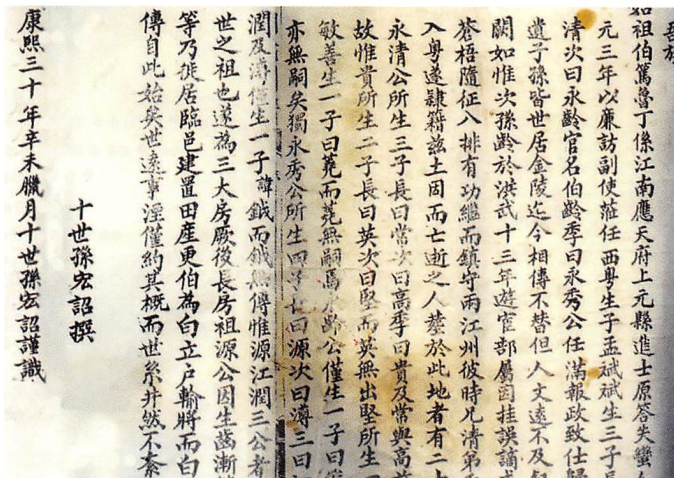 始祖伯篤魯丁係江南應天府上元縣進士原荅失蠻
元三年以廉訪副使蒞任西粵生子孟斌斌生三子長
清次曰永齡官名伯齡季曰永秀公任滿報政致仕歸
遺子孫皆世居金陵迄今相傳不替但人文遠不及
闕如惟次孫齡於洪武十三年遊宦部屬因挂誤謫
蒼梧隨征八排有功繼而鎮守兩江州彼時兄清弟
入粵遂隸籍茲土因而亡逝之人塟於此地者有二
永清公所生三子長曰常次曰高季曰貴及常與高
故惟貴所生二子長曰英次曰堅而英無出堅所生
敏善生一子曰蕘而蕘無嗣焉永齡公僅生一子曰
亦無嗣矣獨永秀公所生四子長曰源次曰漙三曰
潤及漙僅生一子諱鉞而鉞無傳惟源江潤三公者
世之祖也遂為三大房厥後長房祖源公因生齒漸
等乃徙居臨邑建置田產更伯為白立戶輸將而白
傳自此始矣世遠事湮僅約其概而世系井然不紊
十世孫宏詔撰
康熙三十年辛未臘月十世孫宏詔謹識